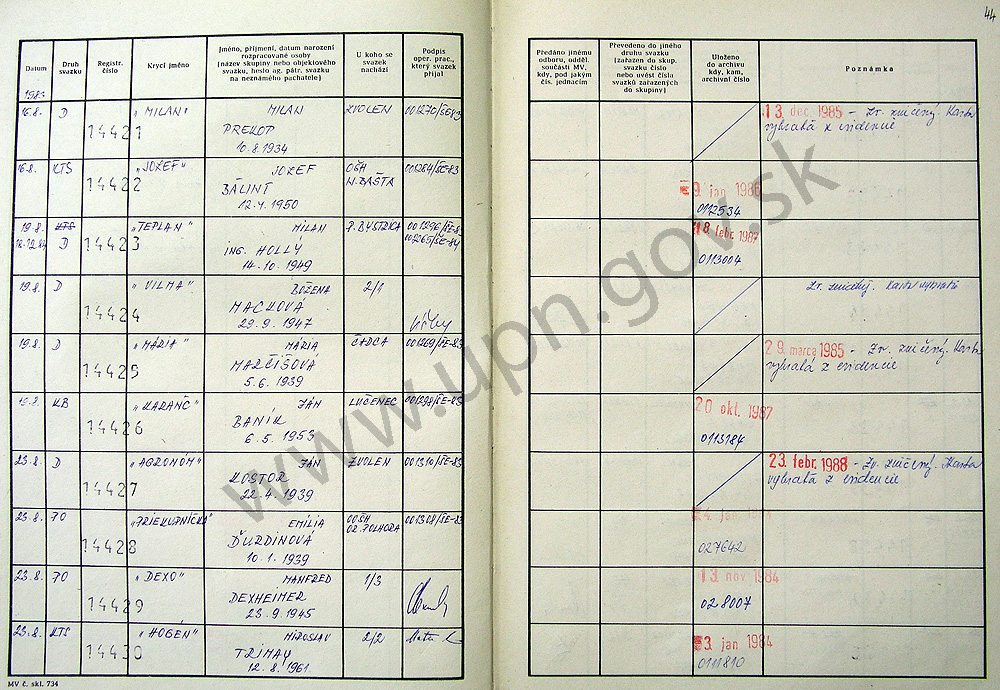 44
Datum
Druh svazku
Registr. číslo
Krycí jméno
Jméno, příjmení, datum narození
rozpracované osoby
(název skupiny nebo objektového
svazku, heslo ag. pátr. svazku
na neznámého pachatele)
U koho se
svazek
nachází
Podpis
oper. prac.,
který svazek
přijal
Předáno jinému
odboru, odděl.
součásti MV,
kdy, pod jakým
čís. jednacím
Převedeno do jiného
druhu svazku
(zařazen do skup.
svazku číslo
nebo uvést čísla
svazků zařazených
do skupiny)
Uloženo
do archivu
kdy, kam,
archivní číslo
Poznámka
1983
16.8. D „MILAN" MILAN ZVOLEN 001270/ŠE-83
14421 PREKOP
10.8.1934
13. dec. 1985 - Zv. zničený. Karta
vybratá z evidencie
16.8. KTS „JOZEF" JOZEF OŠH 001264/ŠE-83
14422 BÁLINT N.BAŠTA
12.4.1950
9. jan 1986
0112534
19.8. KTS „TEPLAN" MILAN P. BYSTRICA 001296/ŠE-83
D 14423 ING. HOLLY 001265/ŠE-84
14.10.1949
18 febr. 1987
0113004
19.8. D „VILMA" BOŽENA 2/1
14424 MACKOVÁ
29.9.1947
Zv. zničený. Karta vybratá
19.8. D „MÁRIA" MÁRIA ČADCA 001269/ŠE-83
14425 MARČIŠOVÁ
5.6.1939
29. marca 1985 - Zv. zničený. Karta
vybratá z evidencie
19.8. KB „KARANČ" JÁN LUČENEC 001298/ŠE-83
14426 BANÍK
6.5.1953
20 okt. 1987
0113184
23.8. D „AGRONÓM" JÁN ZVOLEN 001310/ŠE-83
14427 KOSTOR
22.4.1939
23. febr. 1988 - Zv. zničený. Karta
vybratá z evidencie
23.8. PO „PRIEKUPNÍČKA" EMILIA OOŠH 001308/ŠE-83
14428 ĎURDINOVÁ OR. POLHORA
10.1.1939
4. jan 1984
027642
23.8. PO „DEXO" MANFRED 1/3
14429 DEXHEIMER
23.9.1945
13. nov 1984
028007
23.8. KTS „HOGEN" MIROSLAV 2/2
14430 TRIMAY
12.8.1961
3. jan 1984
0111810
MV č. skl. 734
www.upn.gov.sk